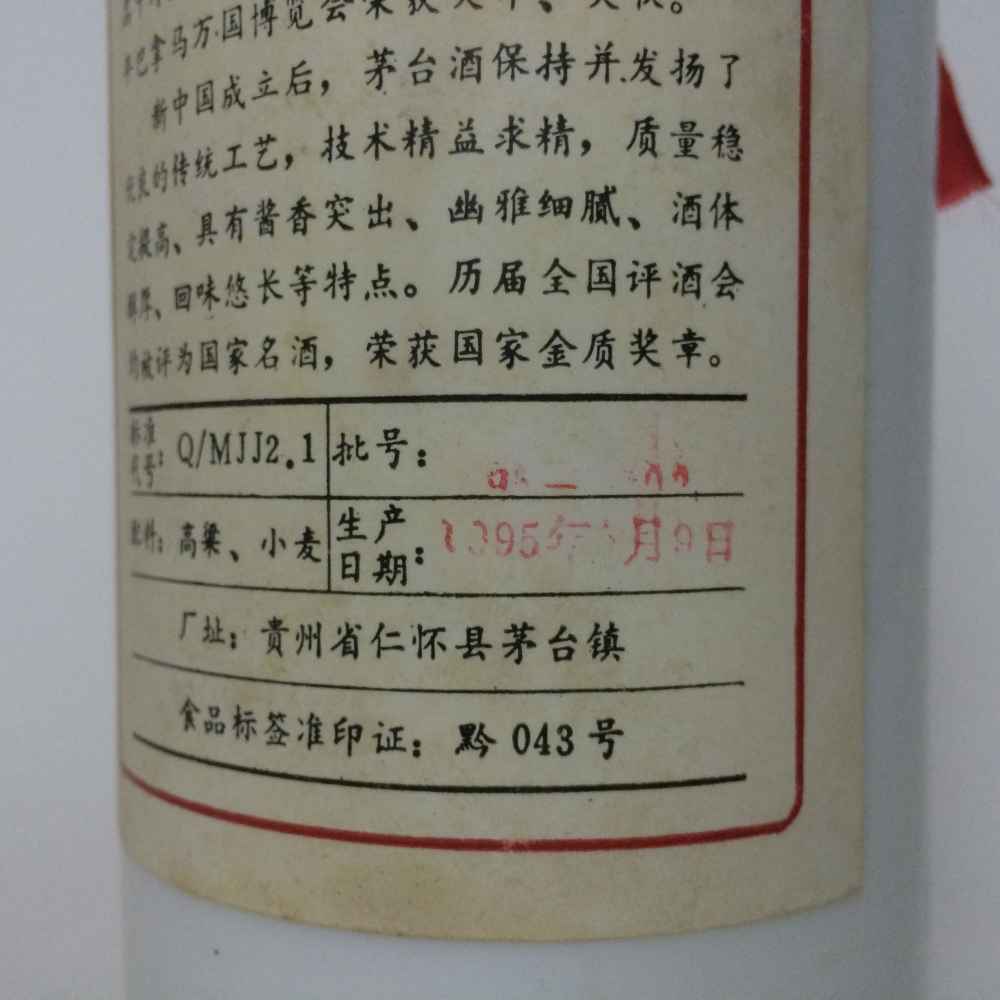 巴拿马万国博览会荣获
新中国成立后，茅台酒保持并发扬了
优良的传统工艺，技术精益求精，质量稳
定提高、具有酱香突出、幽雅细腻、酒体
醇厚、回味悠长等特点。历届全国评酒会
均被评为国家名酒，荣获国家金质奖章。
标准代号：Q/MJJ2.1
批号：
配料：高粱、小麦
生产日期：1995年 月9日
厂址：贵州省仁怀县茅台镇
食品标签准印证：黔043号